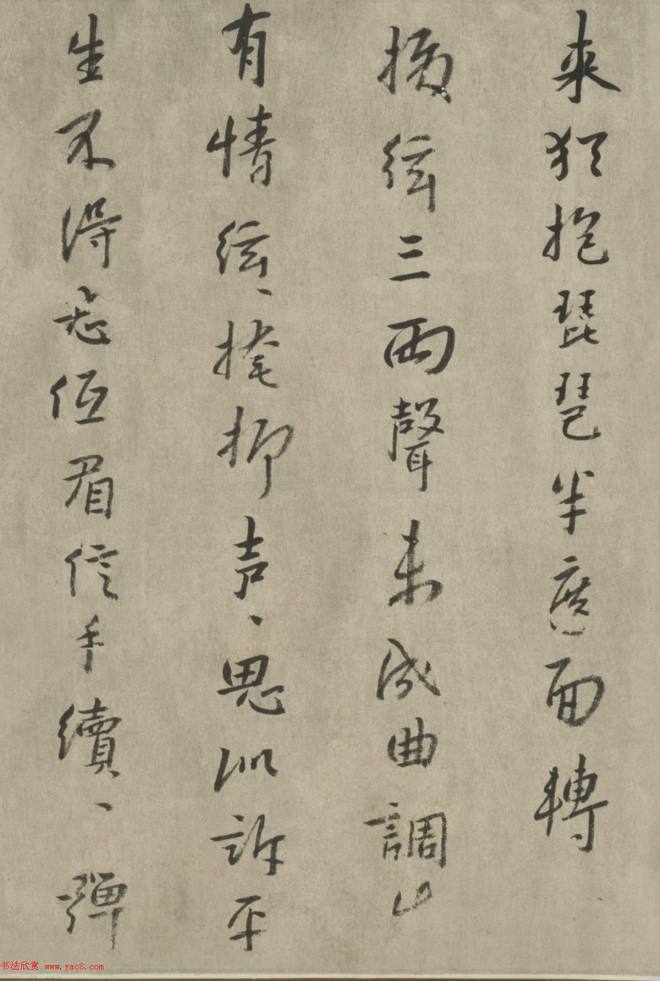 来犹抱琵琶半遮面轉
撥絃三兩聲未成曲調先
有情絃、掩抑声、思似訴平
生不得志低眉信手續、彈
书法欣赏 www.yac8.com